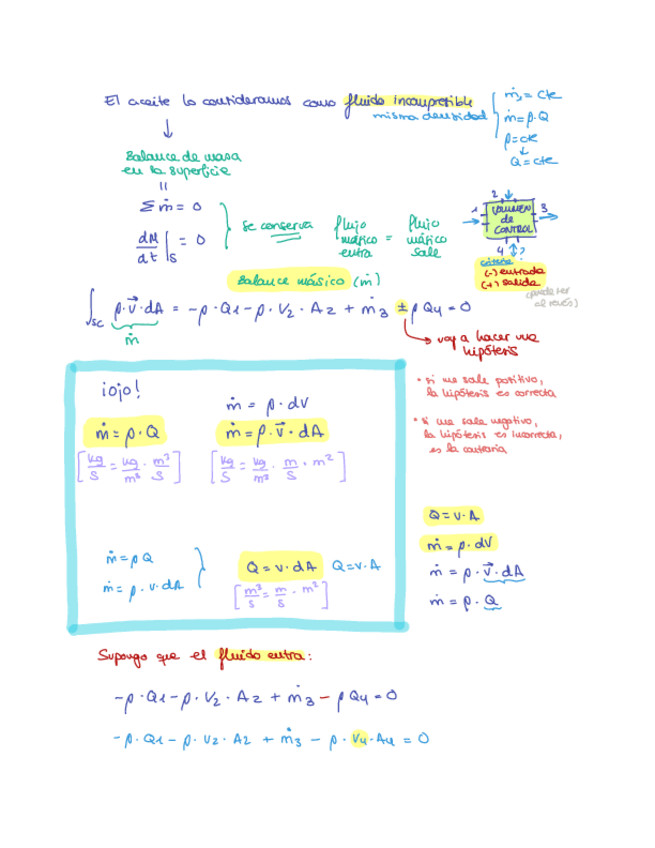 El aceite lo consideramos como fluido incompresible
misma densidad
ṁ, = cte
ṁ = ρ · Q
ρ = cte
↓
Q = cte
↓
Balance de masa
en la superficie
||
Σ ṁ = 0
dM/dt |s = 0
se conserva
flujo másico entra = flujo másico sale
1
2
3
4
?
VOLUMEN
DE
CONTROL
criterio
(-) entrada
(+) salida
(puede ser
al revés)
Balance másico (ṁ)
∫sc ρ · v⃗ · dA = -ρ · Q1 - ρ · V2 · A2 + ṁ3 ± ρ Q4 = 0
ṁ
→ voy a hacer una
hipótesis
• si me sale positivo,
la hipótesis es correcta
• si me sale negativo,
la hipótesis es incorrecta,
es la contraria
¡ojo!
ṁ = ρ · dV
ṁ = ρ · Q
ṁ = ρ · v⃗ · dA
[kg/s = kg/m³ · m³/s]
[kg/s = kg/m³ · m/s · m²]
ṁ = ρ Q
ṁ = ρ · v · dA
Q = v · dA
Q = v · A
[m³/s = m/s · m²]
Q = v · A
ṁ = ρ · dV
ṁ = ρ · v⃗ · dA
ṁ = ρ · Q
Supongo que el fluido entra:
-ρ · Q1 - ρ · V2 · A2 + ṁ3 - ρ Q4 = 0
-ρ · Q1 - ρ · V2 · A2 + ṁ3 - ρ · V4 · A4 = 0